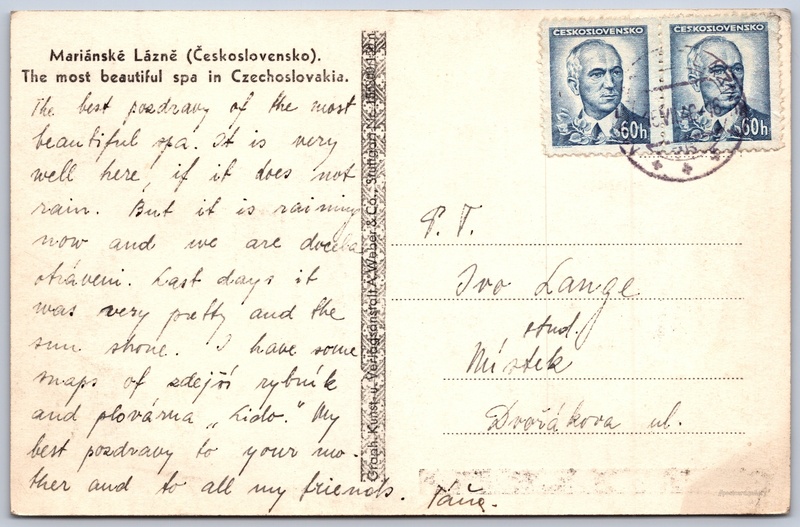 Mariánské Lázně (Československo).
The most beautiful spa in Czechoslovakia.
The best pozdravy of the most
beautiful spa. It is very
well here, if it does not
rain. But it is raining
now and we are docela
otráveni. Last days it
was very pretty and the
sun shone. I have some
snaps of zdejší rybník
and plovárna „Lido." My
best pozdravy to your mo-
ther and to all my friends. Táňa.
Graph. Kunst- u. Verlagsanstalt A. Weber & Co., Stuttgart
ČESKOSLOVENSKO
60h
ČESKOSLOVENSKO
60h
P. T.
Ivo Lange
stud.
Místek
Dvořákova ul.